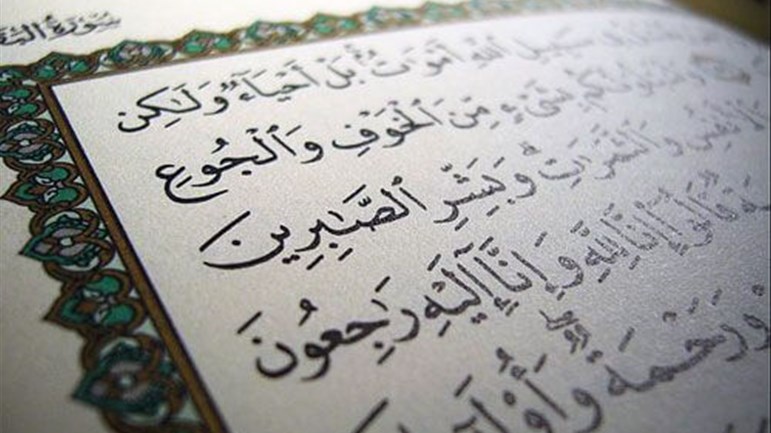 سُورَةُ الْبَقَ
سَبِيلِ ٱللَّهِ أَمْوَٰتٌۢ بَلْ أَحْيَآءٌ وَلَٰكِن
وَلَنَبْلُوَنَّكُم بِشَىْءٍ مِّنَ ٱلْخَوْفِ وَٱلْجُوعِ
وَٱلْأَنفُسِ وَٱلثَّمَرَٰتِ ۗ وَبَشِّرِ ٱلصَّٰبِرِينَ
قَالُوٓا۟ إِنَّا لِلَّهِ وَإِنَّآ إِلَيْهِ رَٰجِعُونَ
وَرَحْمَةٌ ۖ وَأُو۟لَٰٓئِكَ